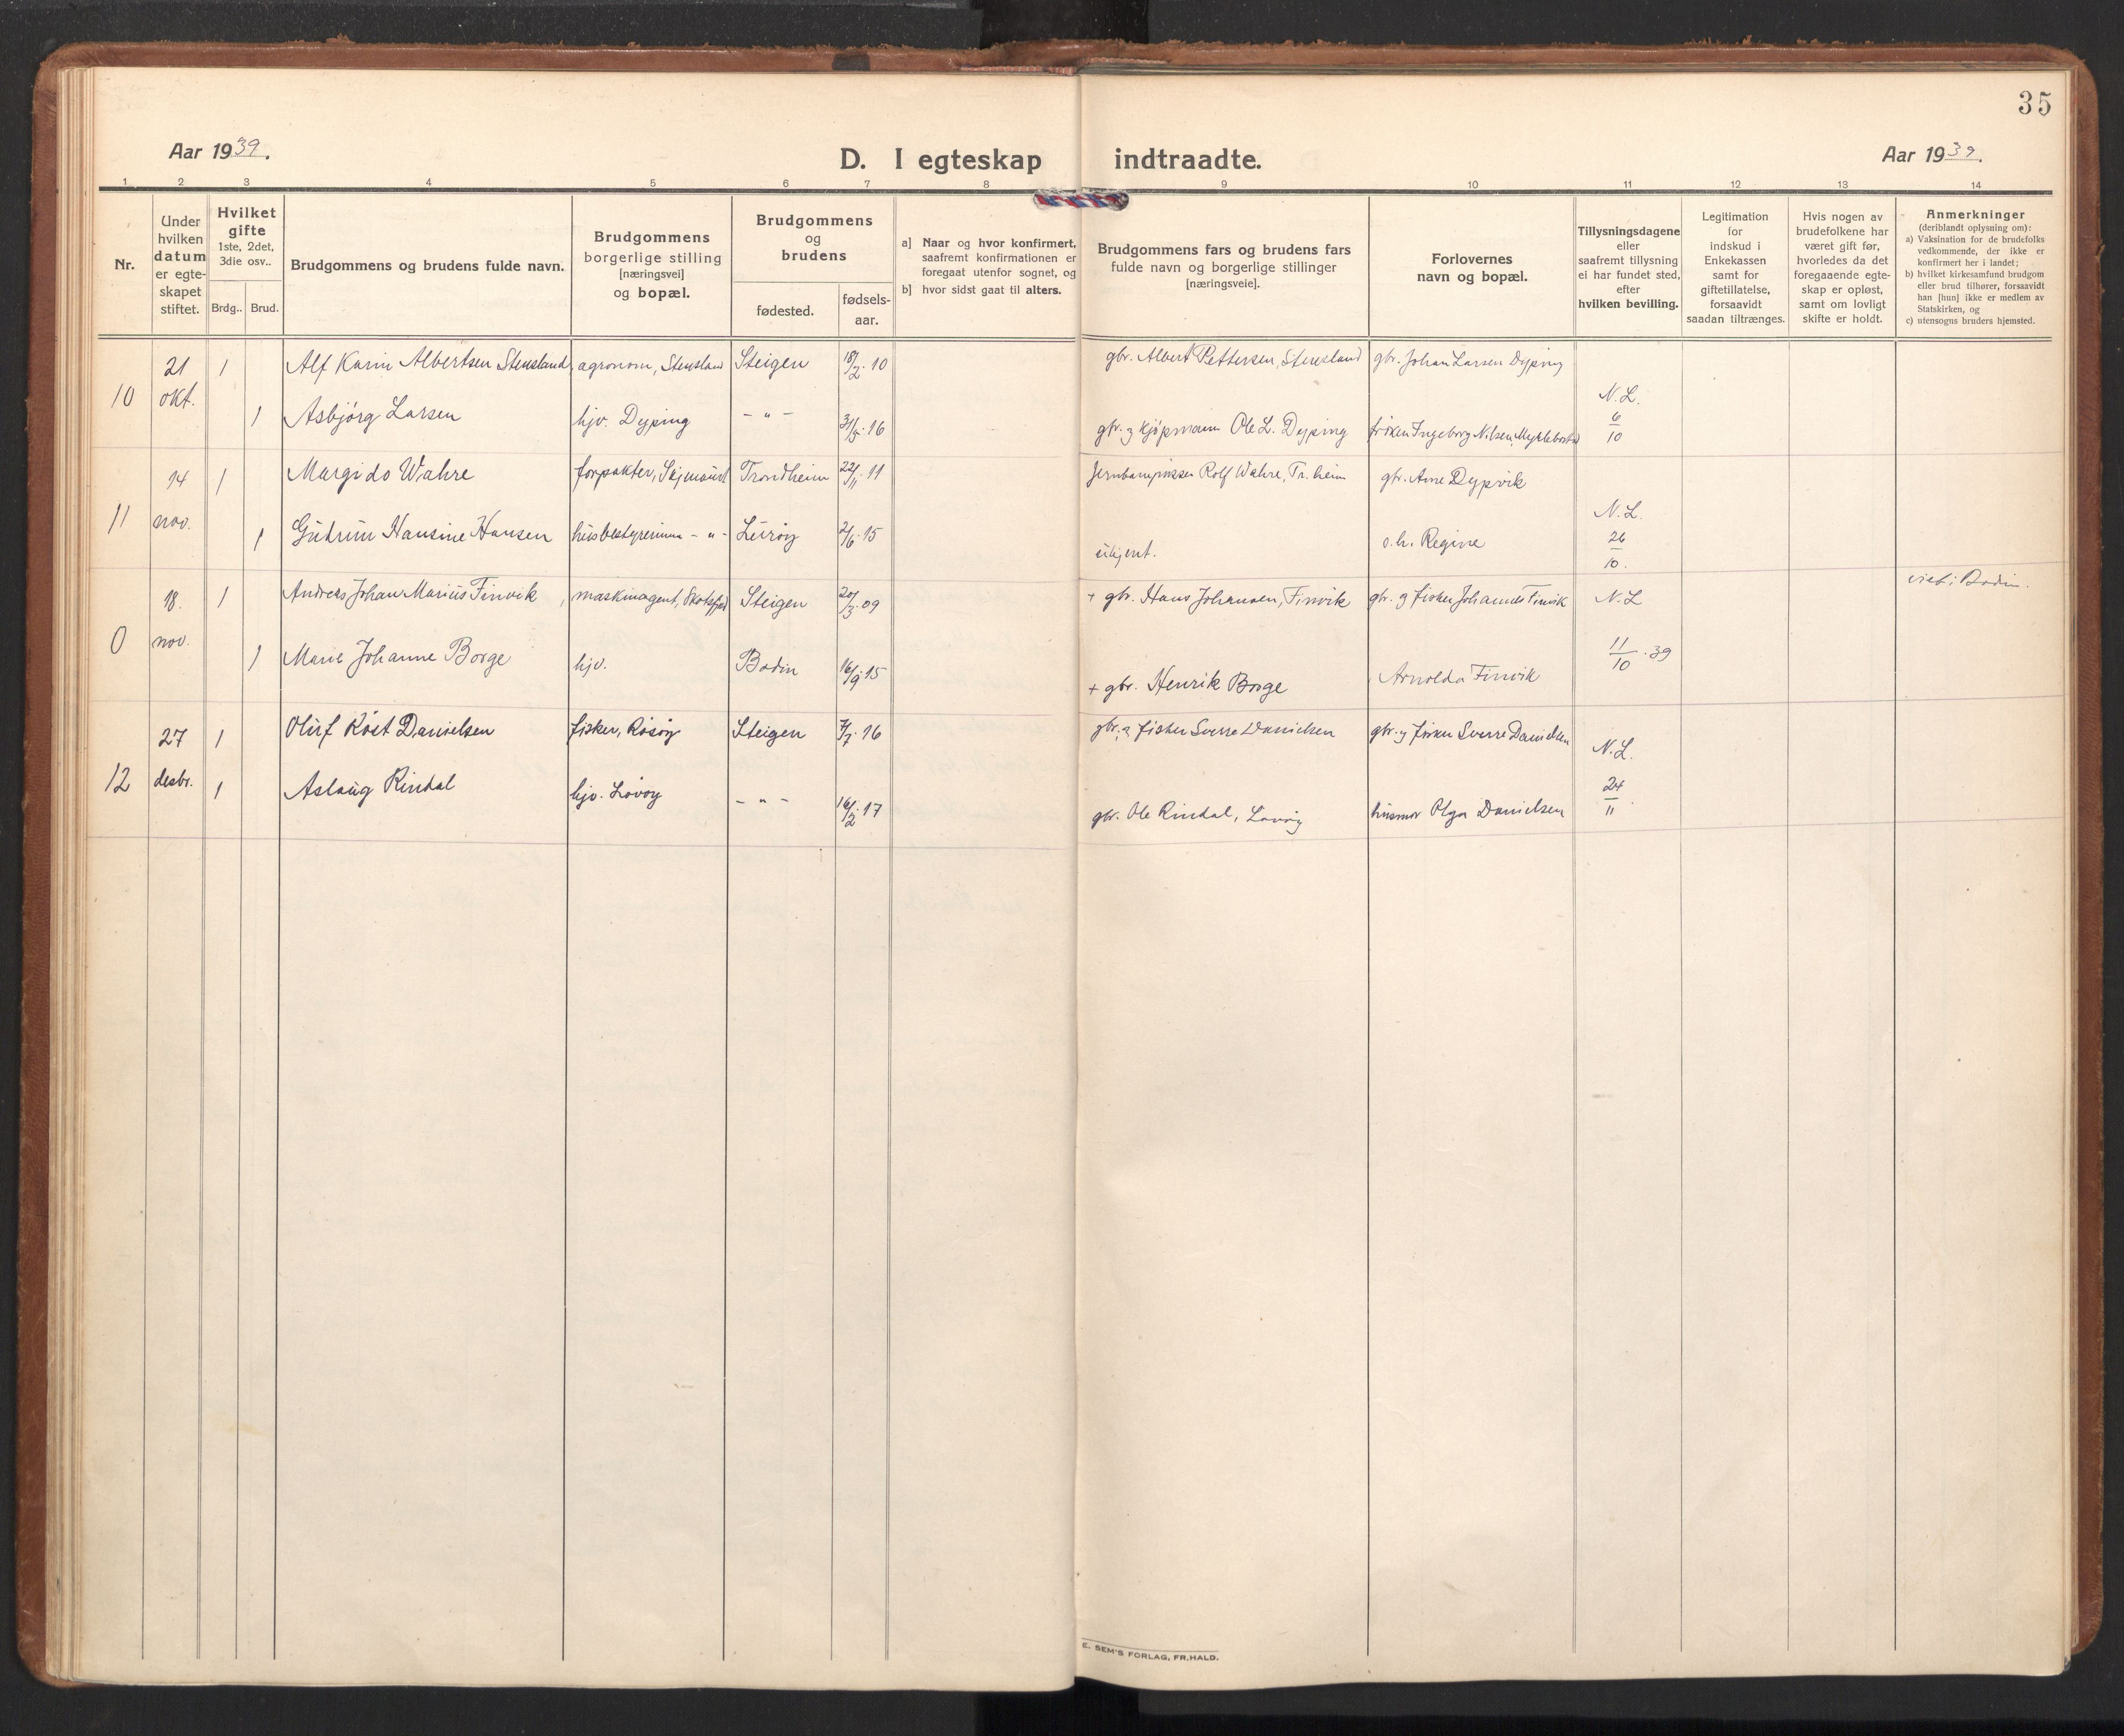 35
Aar 1939.
D. I egteskap indtraadte.
Aar 1939.
1 2 3 4 5 6 7 8 9 10 11 12 13 14
Nr.
Under
hvilken
datum
er egte-
skapet
stiftet.
Hvilket
gifte
1ste, 2det,
3die osv..
Brdg.. Brud.
Brudgommens og brudens fulde navn.
Brudgommens
borgerlige stilling
[næringsvei]
og bopæl.
Brudgommens
og
brudens
fødested.
fødsels-
aar.
a] Naar og hvor konfirmert,
saafremt konfirmationen er
foregaat utenfor sognet, og
b] hvor sidst gaat til alters.
Brudgommens fars og brudens fars
fulde navn og borgerlige stillinger
[næringsveie].
Forlovernes
navn og bopæl.
Tillysningsdagene
eller
saafremt tillysning
ei har fundet sted,
efter
hvilken bevilling.
Legitimation
for
indskud i
Enkekassen
samt for
giftetillatelse,
forsaavidt
saadan tiltrænges.
Hvis nogen av
brudefolkene har
været gift før,
hvorledes da det
foregaaende egte-
skap er opløst,
samt om lovligt
skifte er holdt.
Anmerkninger
(deriblandt oplysning om):
a) Vaksination for de brudefolks
vedkommende, der ikke er
konfirmert her i landet;
b) hvilket kirkesamfund brudgom
eller brud tilhører, forsaavidt
han [hun] ikke er medlem av
Statskirken, og
c) utensogns bruders hjemsted.
10 21 okt. 1 Alf Karin Albertsen Stensland, agronom, Stensland Steigen 18/2.10 gbr. Albert Pettersen, Stensland gbr. Johan Larsen Dyping N.L. 6/10
1 Asbjörg Larsen hjv. Dyping - " - 31/5.16 gbr. og kjöpmann Ole L. Dyping fröken Ingeborg Nilsen, Myklebostad
11 14 nov. 1 Margido Wahre forpakter, Trondheim 22/11.11 Rolf Wahre, Tr.heim gbr. Arne Dypvik N.L. 26/10.
1 Gudrun Hansine Hansen husbestyrerinne - " - Luröy 2/6.15 o.h. Regine
0 18. nov. 1 Andreas Johan Marius Finvik, maskinagent, Steigen 20/3.09 + gbr. Hans Johansen, Finvik gbr. og fisker Johannes Finvik N.L 11/10.39 viet i Bodin.
1 Marie Johanne Borge hjv. Bodin 16/9.15 + gbr. Henrik Borge Arnolda Finvik
12 27 desbr. 1 Oluf Röst Danielsen fisker, Rösöy Steigen 7/7.16 gbr. og fisker Sverre Danielsen gbr. og fisker Sverre Danielsen N.L. 24/11.
1 Aslaug Rindal hjv. Lövöy - " - 16/2.17 gbr. Ole Rindal, Lövöy husmor Olga Danielsen
E. SEM'S FORLAG, FR.HALD.